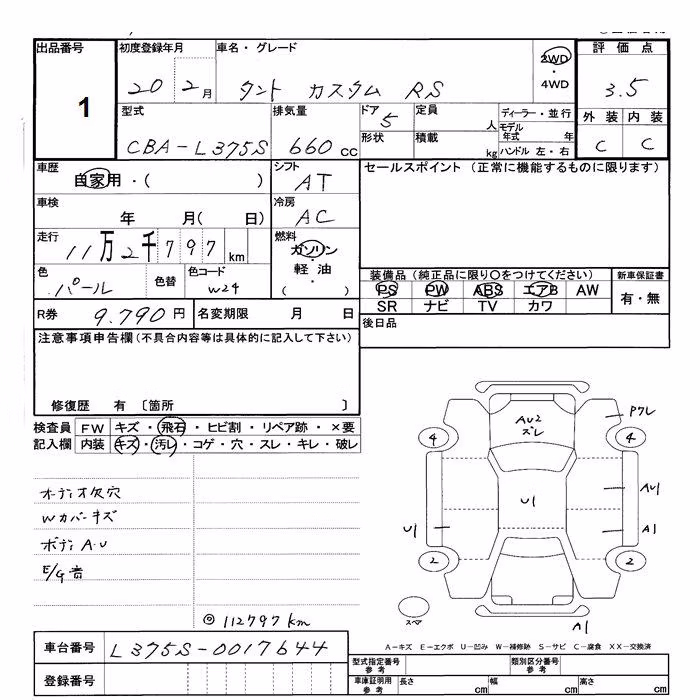 出品番号
1
初度登録年月
20 2月
車名・グレード
タント カスタム RS
2WD
・
4WD
評価点
3.5
型式
CBA-L375S
排気量
660 cc
ドア
5
定員
人
形状
積載
kg
ディーラー・並行
モデル年式 年
ハンドル 左・右
外装 内装
C C
車歴
自家用・( )
シフト
AT
セールスポイント (正常に機能するものに限ります)
車検
年 月( 日)
冷房
AC
走行
11万2千797km
燃料
ガソリン
・
軽油
( )
色
パール
色替
色コード
W24
装備品 (純正品に限り○をつけてください)
PS PW ABS エアB AW
SR ナビ TV カワ
新車保証書
有・無
R券 9.790円
名変期限 月 日
後日品
注意事項申告欄 (不具合内容等は具体的に記入して下さい)
修復歴 有 〔箇所 〕
検査員 FW キズ・飛石・ヒビ割・リペア跡・×要
記入欄 内装 キズ・汚レ・コゲ・穴・スレ・キレ・破レ
オーディオ欠穴
Wカバーキズ
ボディA・U
E/G音
◎112797km
AU2
ズレ
4
4
U1
AU1
U1
A1
2
2
スペア
A1
A-キズ E-エクボ U-凹み W-補修跡 S-サビ C-腐食 XX-交換済
車台番号 L375S-0017644
登録番号
型式指定番号
参考
類別区分番号
参考
車庫証明用
参考
長さ cm
幅 cm
高さ cm